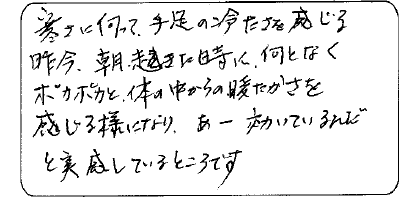 寒さに向って、手足の冷たさを感じる
昨今、朝、起きた時に、何となく
ポカポカと、体の中からの暖たかさを
感じる様になり、あー効いているんだ
と実感しているところです